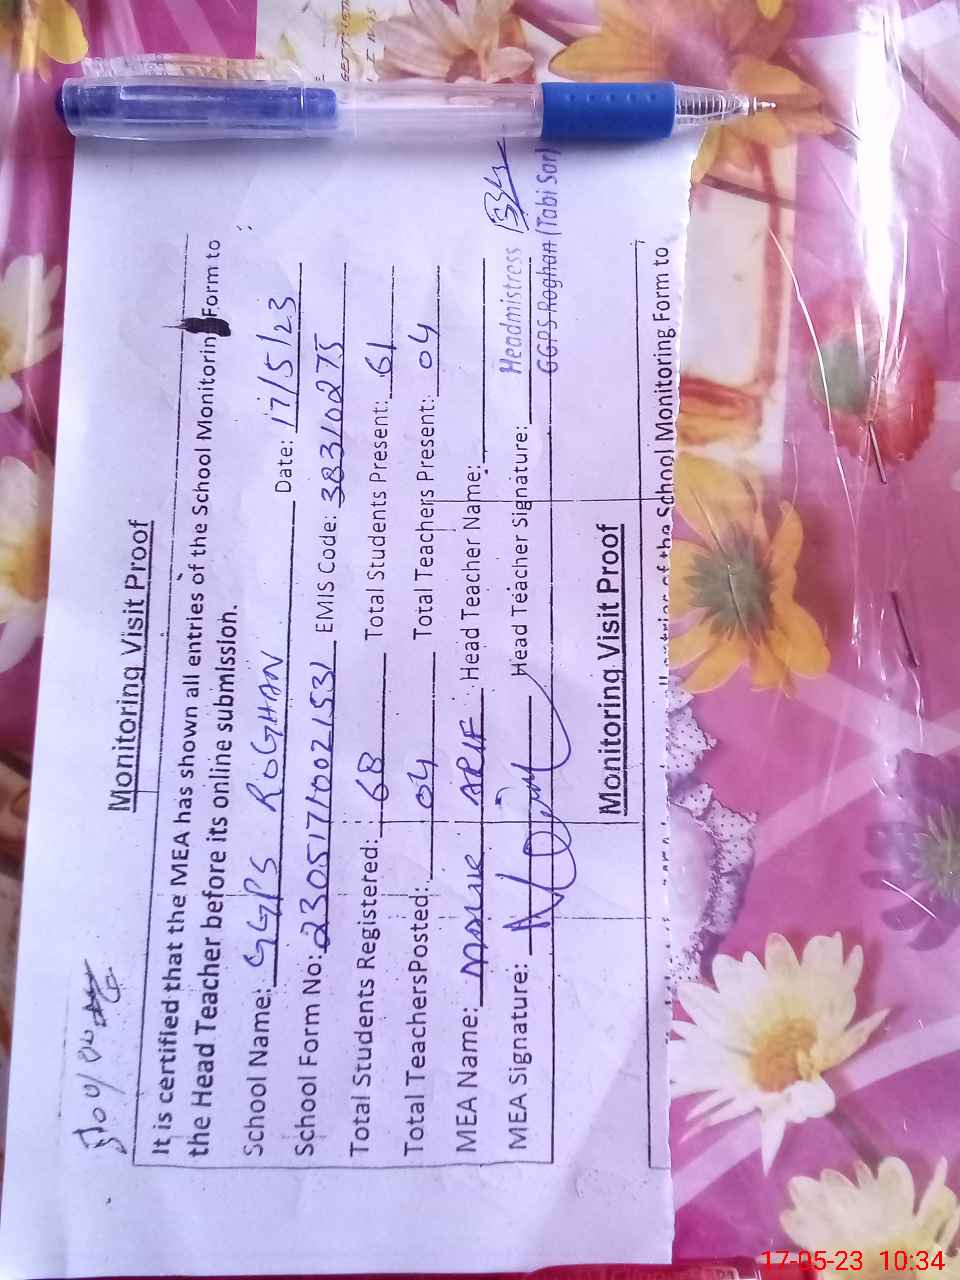 Monitoring Visit Proof
It is certified that the MEA has shown all entries of the School Monitoring Form to
the Head Teacher before its online submission.
School Name: GGPS ROGHAN Date: 17/5/23
School Form No: 23051710021531 EMIS Code: 38310275
Total Students Registered: 68 Total Students Present: 61
Total TeachersPosted: 04 Total Teachers Present: 04
MEA Name: MALIK ARIF Head Teacher Name:
MEA Signature: Head Teacher Signature: Headmistress
GGPS Roghan (Tabi Sar)
Monitoring Visit Proof
entries of the School Monitoring Form to
17-05-23 10:34